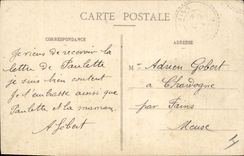 CARTE POSTALE
CORRESPONDANCE
Je viens de recevoir la
lettre de Paulette
je suis bien content
Je t'embrasse ainsi que
Paulette et la maman
A Gobert
ADRESSE
M Adrien Gobert
à Chardogne
par Fains
Meuse